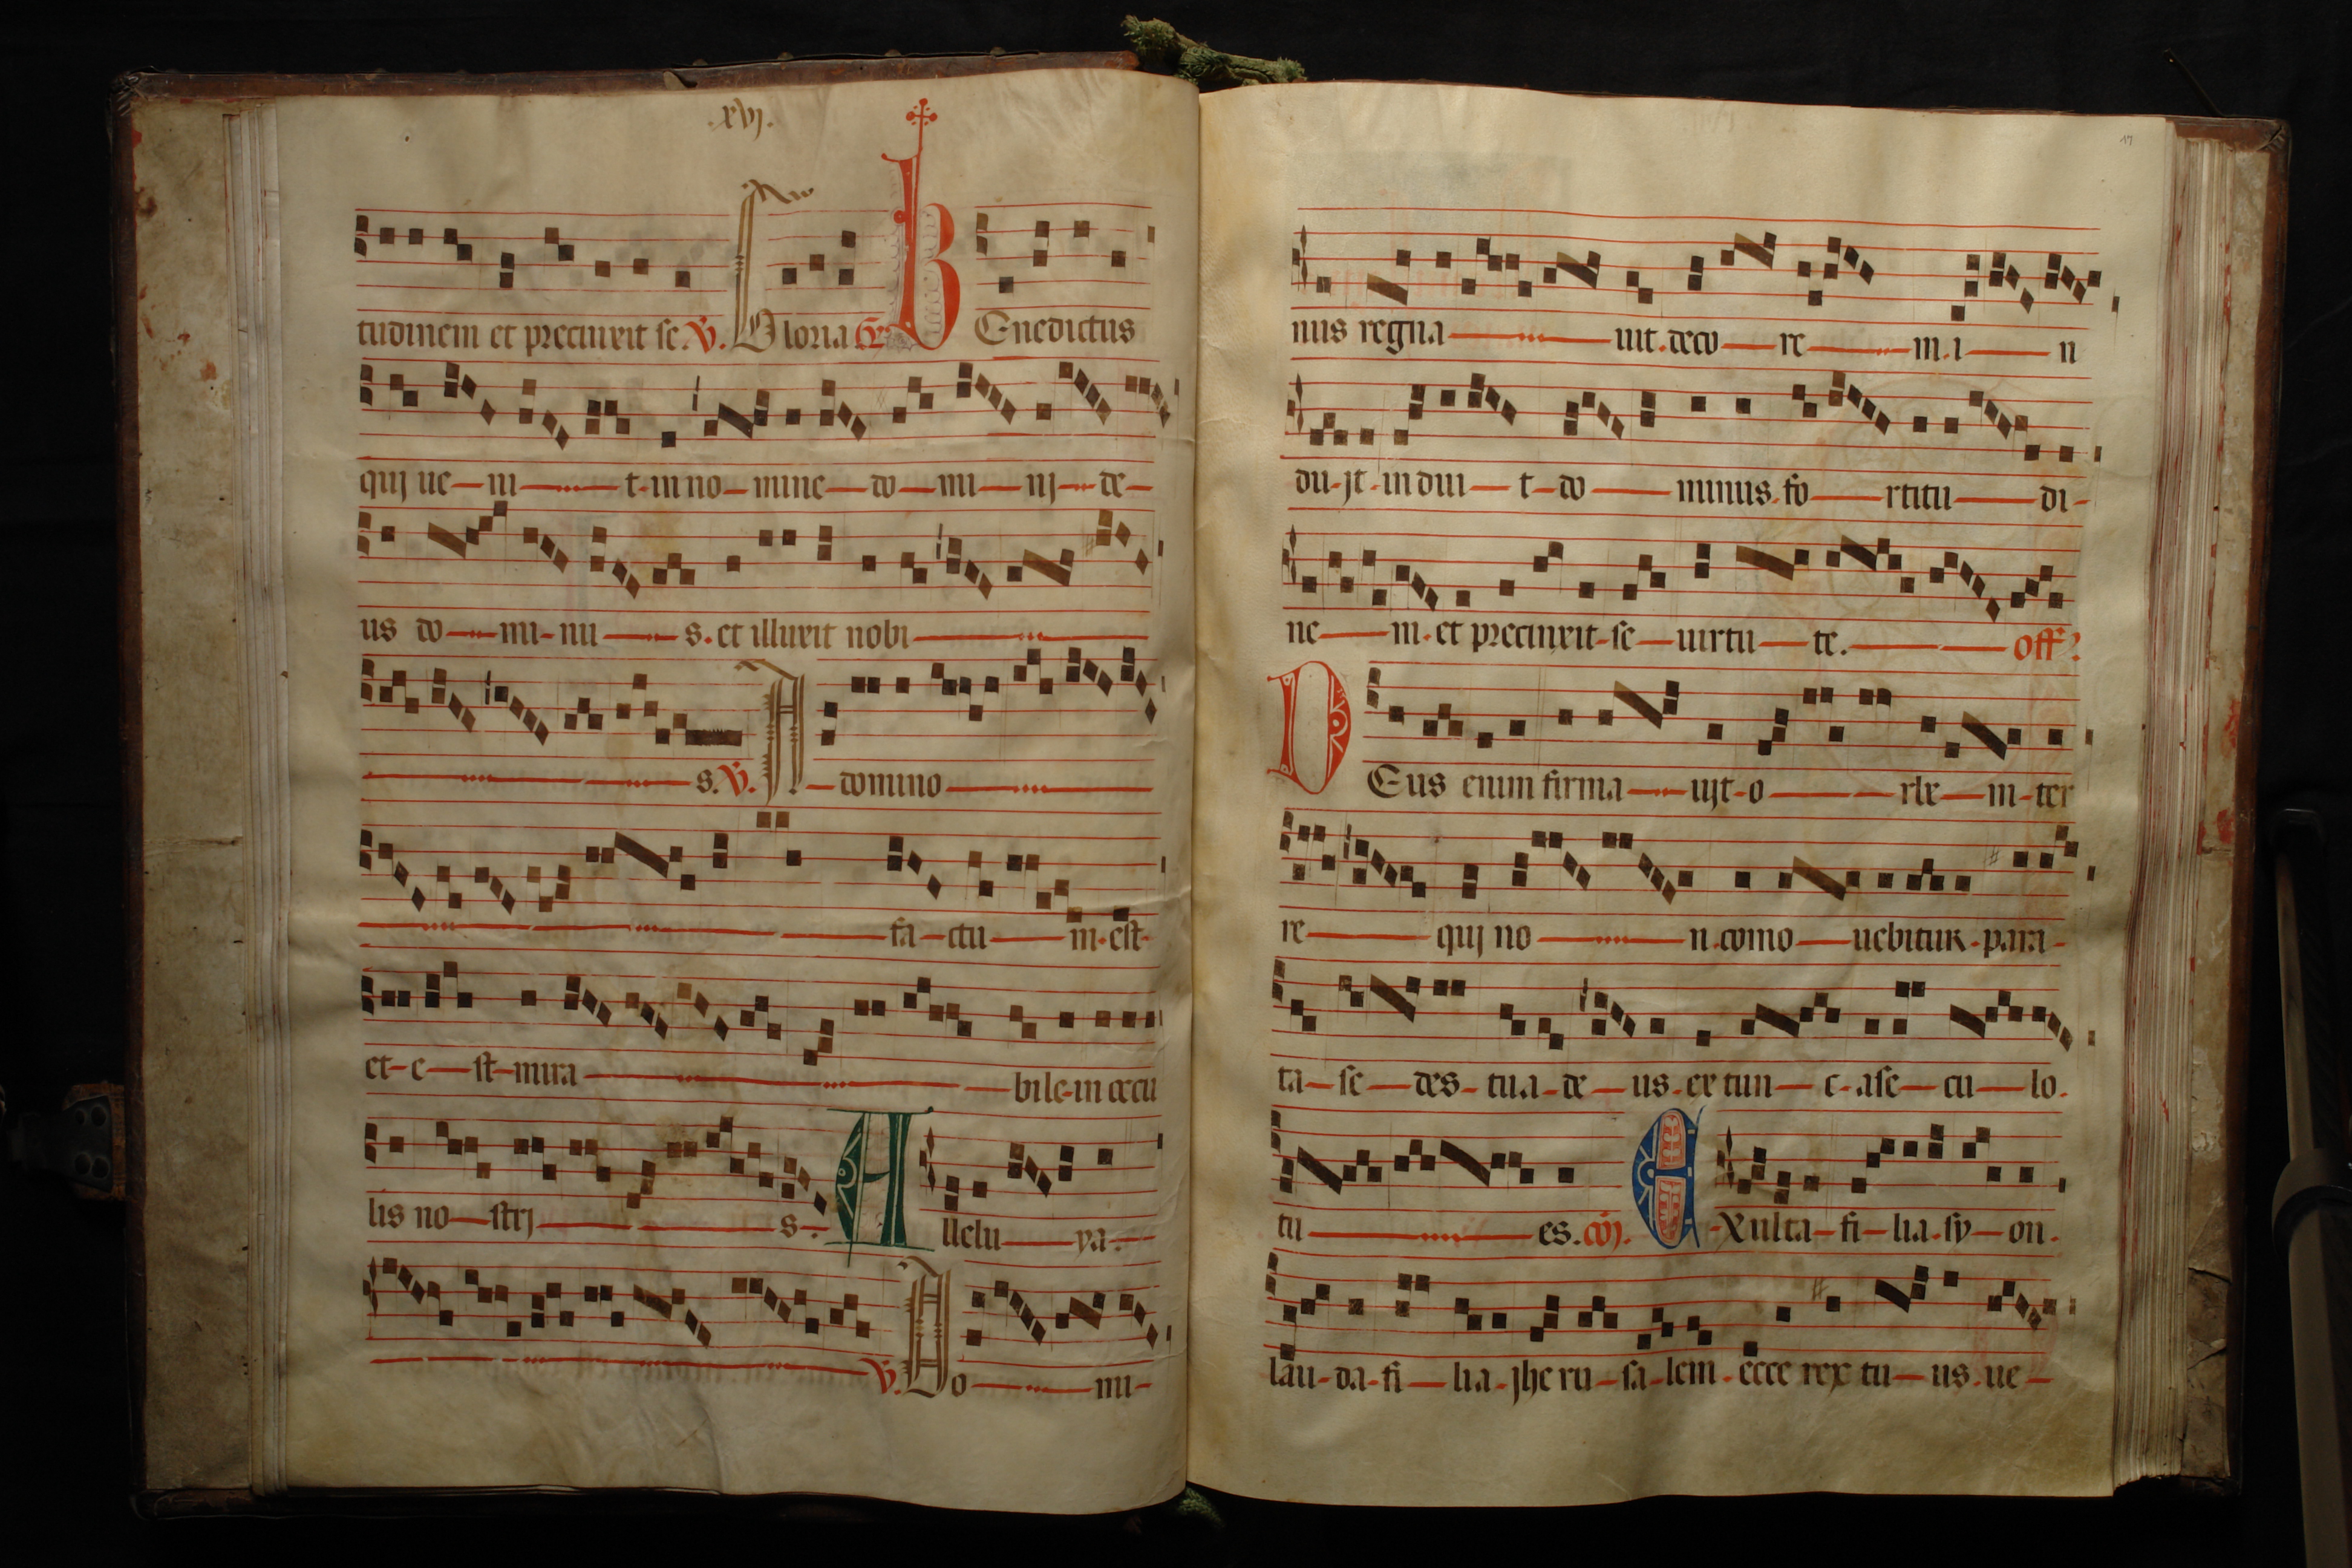 .xvj.
tudinem et precinxit se. V. Gloria Gr. BEnedictus
quj ue—ni—t-in no—mine—do—mi—nj—de—
us do—mi-nu—s. et illuxit nobi—
—s. V. A—domino—
—fa—ctu—m-est-
et-e—st-mira—bile-in ocu
lis no—strj—s. Allelu—ya.—
—V. Do—mi-
17
nus regna—uit. deco—re—m. i—n
du-jt-indui—t-do—minus. fo—rtitu—di-
ne—m. et precinxit-se—uirtu—te.—off?
DEus enim firma—ujt-o—rbe—m-ter
re—quj no—n. como—uebitur. para-
ta—se—des-tua-de—us. ex tun—c-ase—cu—lo.
tu—es. coj. E-Xulta—fi—lia. sy—on.
lau-da-fi—lia-jheru—sa-lem. ecce rex tu—us. ue—